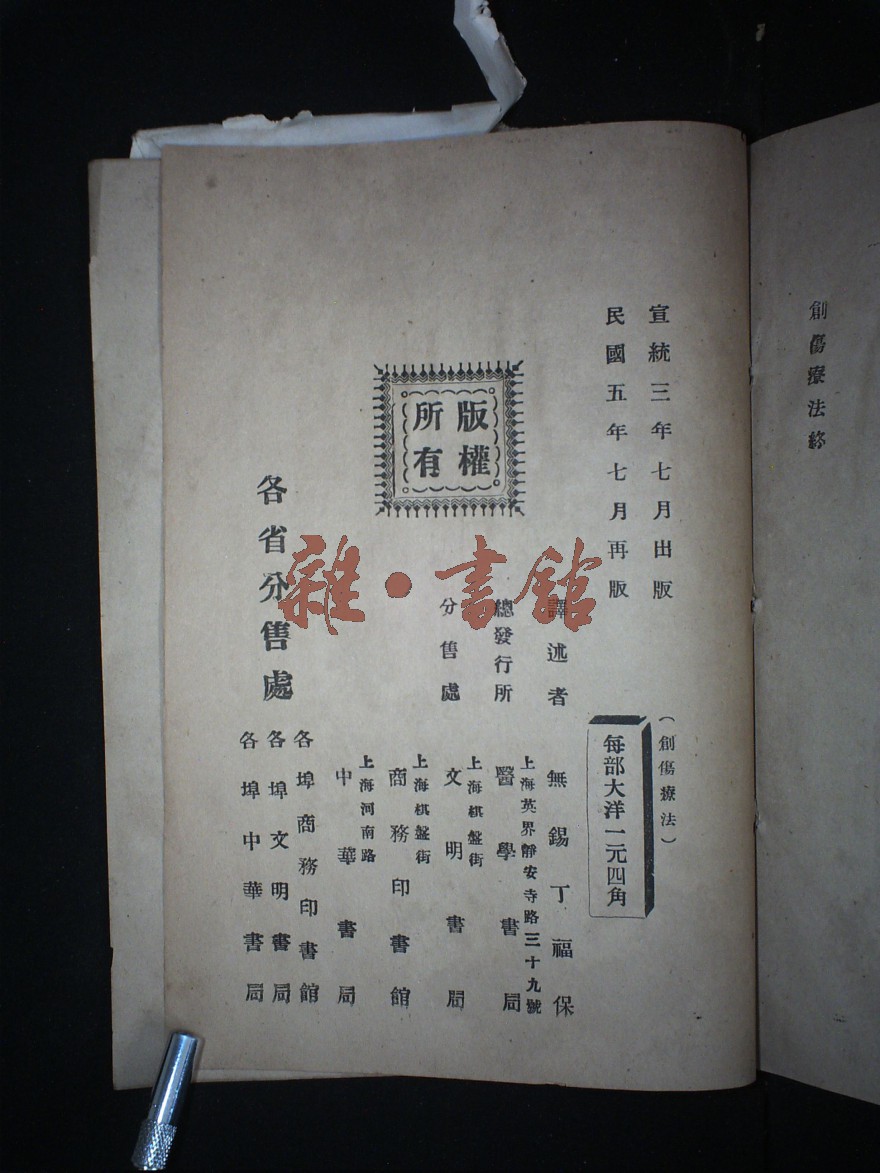 創傷療法終
宣統三年七月出版
民國五年七月再版
(創傷療法)
每部大洋一元四角
版權
所有
譯述者 無錫丁福保
總發行所 上海英界靜安寺路三十九號
醫學書局
分售處 上海棋盤街
文明書局
上海棋盤街
商務印書館
上海河南路
中華書局
各省分售處
各埠商務印書館
各埠文明書局
各埠中華書局
雜·書館